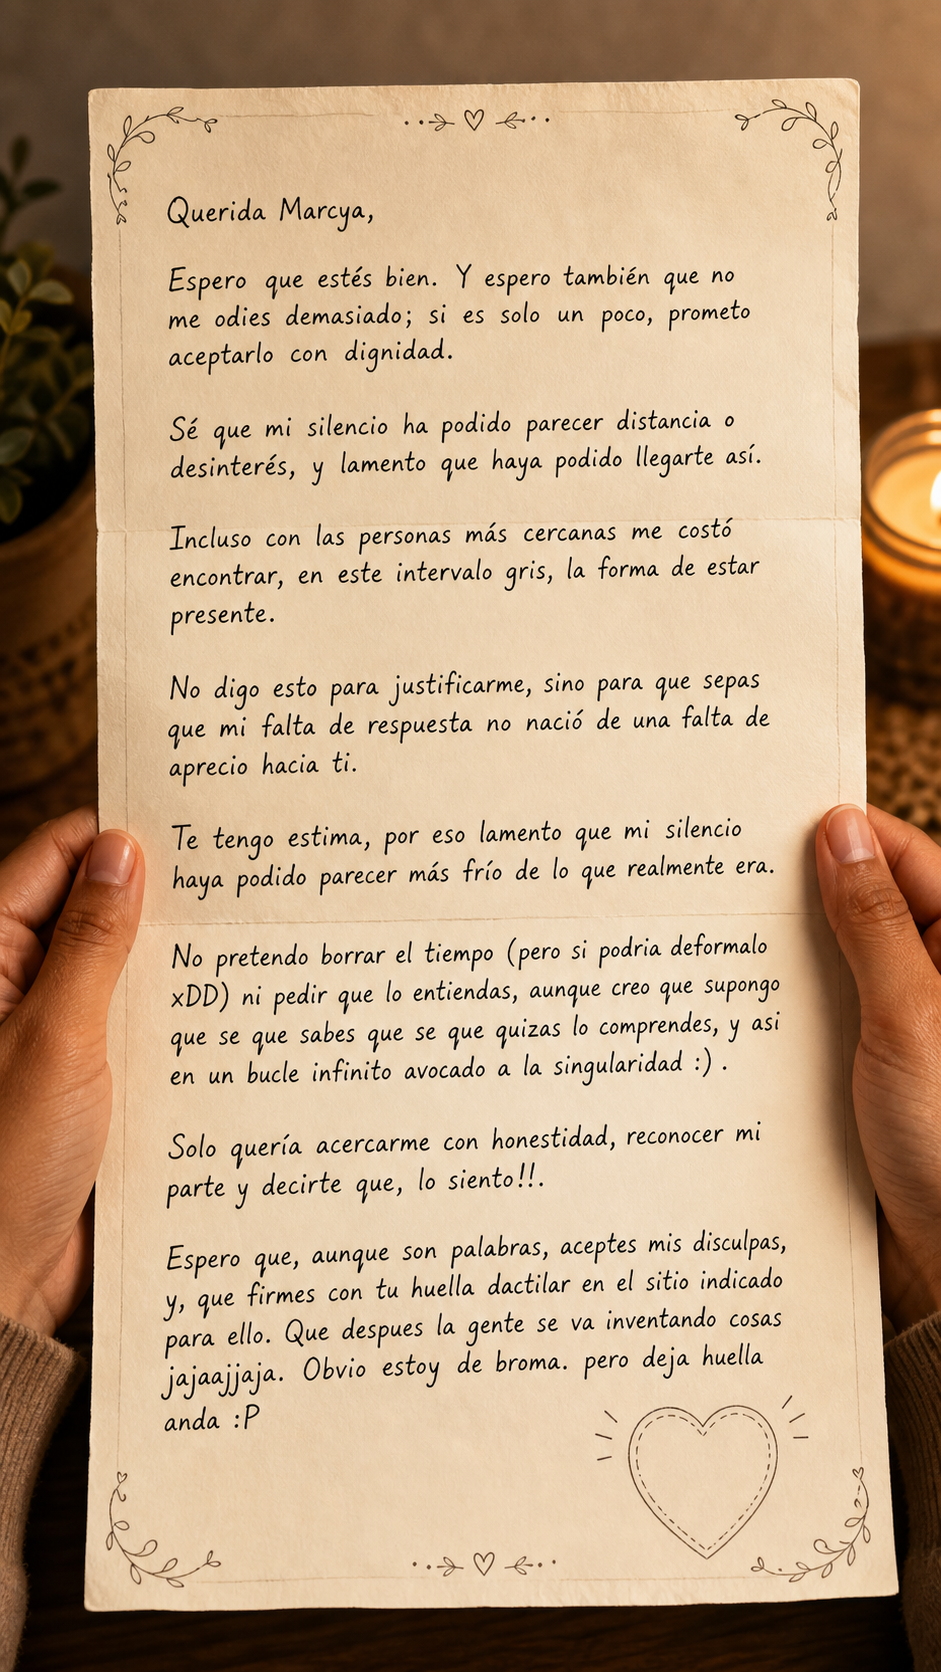 Querida Marcya,
Espero que estés bien. Y espero también que no
me odies demasiado; si es solo un poco, prometo
aceptarlo con dignidad.
Sé que mi silencio ha podido parecer distancia o
desinterés, y lamento que haya podido llegarte así.
Incluso con las personas más cercanas me costó
encontrar, en este intervalo gris, la forma de estar
presente.
No digo esto para justificarme, sino para que sepas
que mi falta de respuesta no nació de una falta de
aprecio hacia ti.
Te tengo estima, por eso lamento que mi silencio
haya podido parecer más frío de lo que realmente era.
No pretendo borrar el tiempo (pero si podria deformalo
xDD) ni pedir que lo entiendas, aunque creo que supongo
que se que sabes que se que quizas lo comprendes, y asi
en un bucle infinito avocado a la singularidad :) .
Solo quería acercarme con honestidad, reconocer mi
parte y decirte que, lo siento!!.
Espero que, aunque son palabras, aceptes mis disculpas,
y, que firmes con tu huella dactilar en el sitio indicado
para ello. Que despues la gente se va inventando cosas
jajaajjaja. Obvio estoy de broma. pero deja huella
anda :P